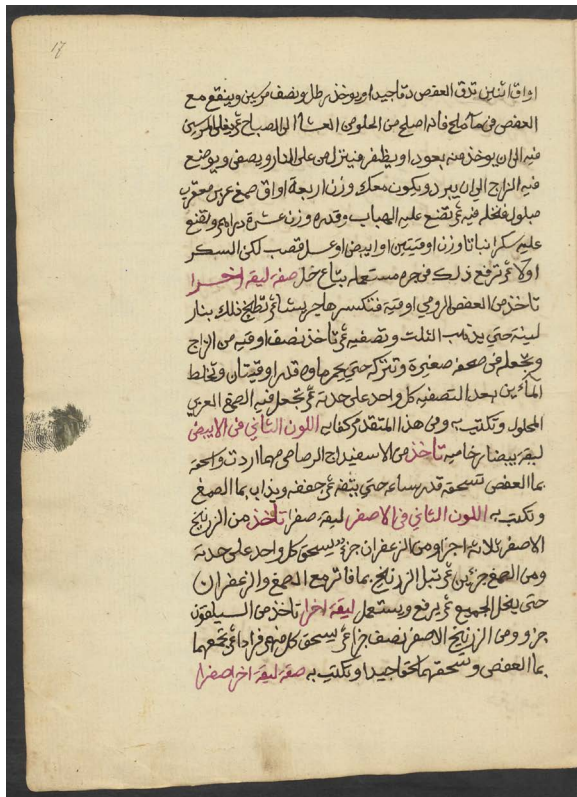 17
اواق اثنين تدق العفص دقا جيدا ويوخذ رطل ونصف مرسين وينقع مع
العفص فى ماء مالح فاذا صلح من الحلو من العشا الى الصباح ثم يغلى المرسين
فيه الى ان يوخذ منه بعود او بظفر فينزل من على النار ويصفى ويوضع
فيه الزاج الى ان يبرد ويكون معك وزن اربعة اواق صمغ عربى معقرب
مبلول فتخله فيه ثم تضع عليه الهباب وقدره وزن عشرة دراهم وتضع
عليه سكرا نباتا وزن اوقيتين او ابيض او عسل قصب لكن السكر
اولا ثم ترفع ذلك فى جره مستعمله بتاع خل صفة ليقة اخرا
تاخذ من العفص الرومى اوقية فتكسرها جريشا ثم تطبخ ذلك بنار
لينة حتى يذهب الثلت وتصفيه ثم تاخذ نصف اوقيه من الزاج
وتجعله فى صحفة صغيرة وتتركه حتى يحمر ماوه قدر اوقيتان وتخلط
المائين بعد التصفيه كل واحد على حدته ثم تجعل فيه الصمغ العربى
المحلول وتكتب به وفى هذا المتقدم كفايه اللون الثانى فى الابيض
ليقة بيضا رخاميه تاخذ من الاسفيداج الرصاصى مهما اردت واسحقه
بما العفص تسحقه قدر ساعه حتى ثم جففه ويذاب بما الصمغ
وتكتب به اللون الثانى فى الاصفر ليقة صفرا تاخذ من الزرنيخ
الاصفر ثلاثة اجزا ومن الزعفران جزء يسحق كل واحد على حدته
ومن الصمغ جزئين ثم تبل الزرنيخ بما فاتر مع الصمغ والزعفران
حتى ينحل الجميع ثم يرفع ويستعمل ليقة اخرا تاخذ من السيلقون
جزو ومن الزرنيخ الاصفر نصف جزا ثم يسحق كل منهم فرادا ثم تجمعهما
بما العفص وتسحقهما سحقا جيدا وتكتب به صفة ليقة اخرا صفرا